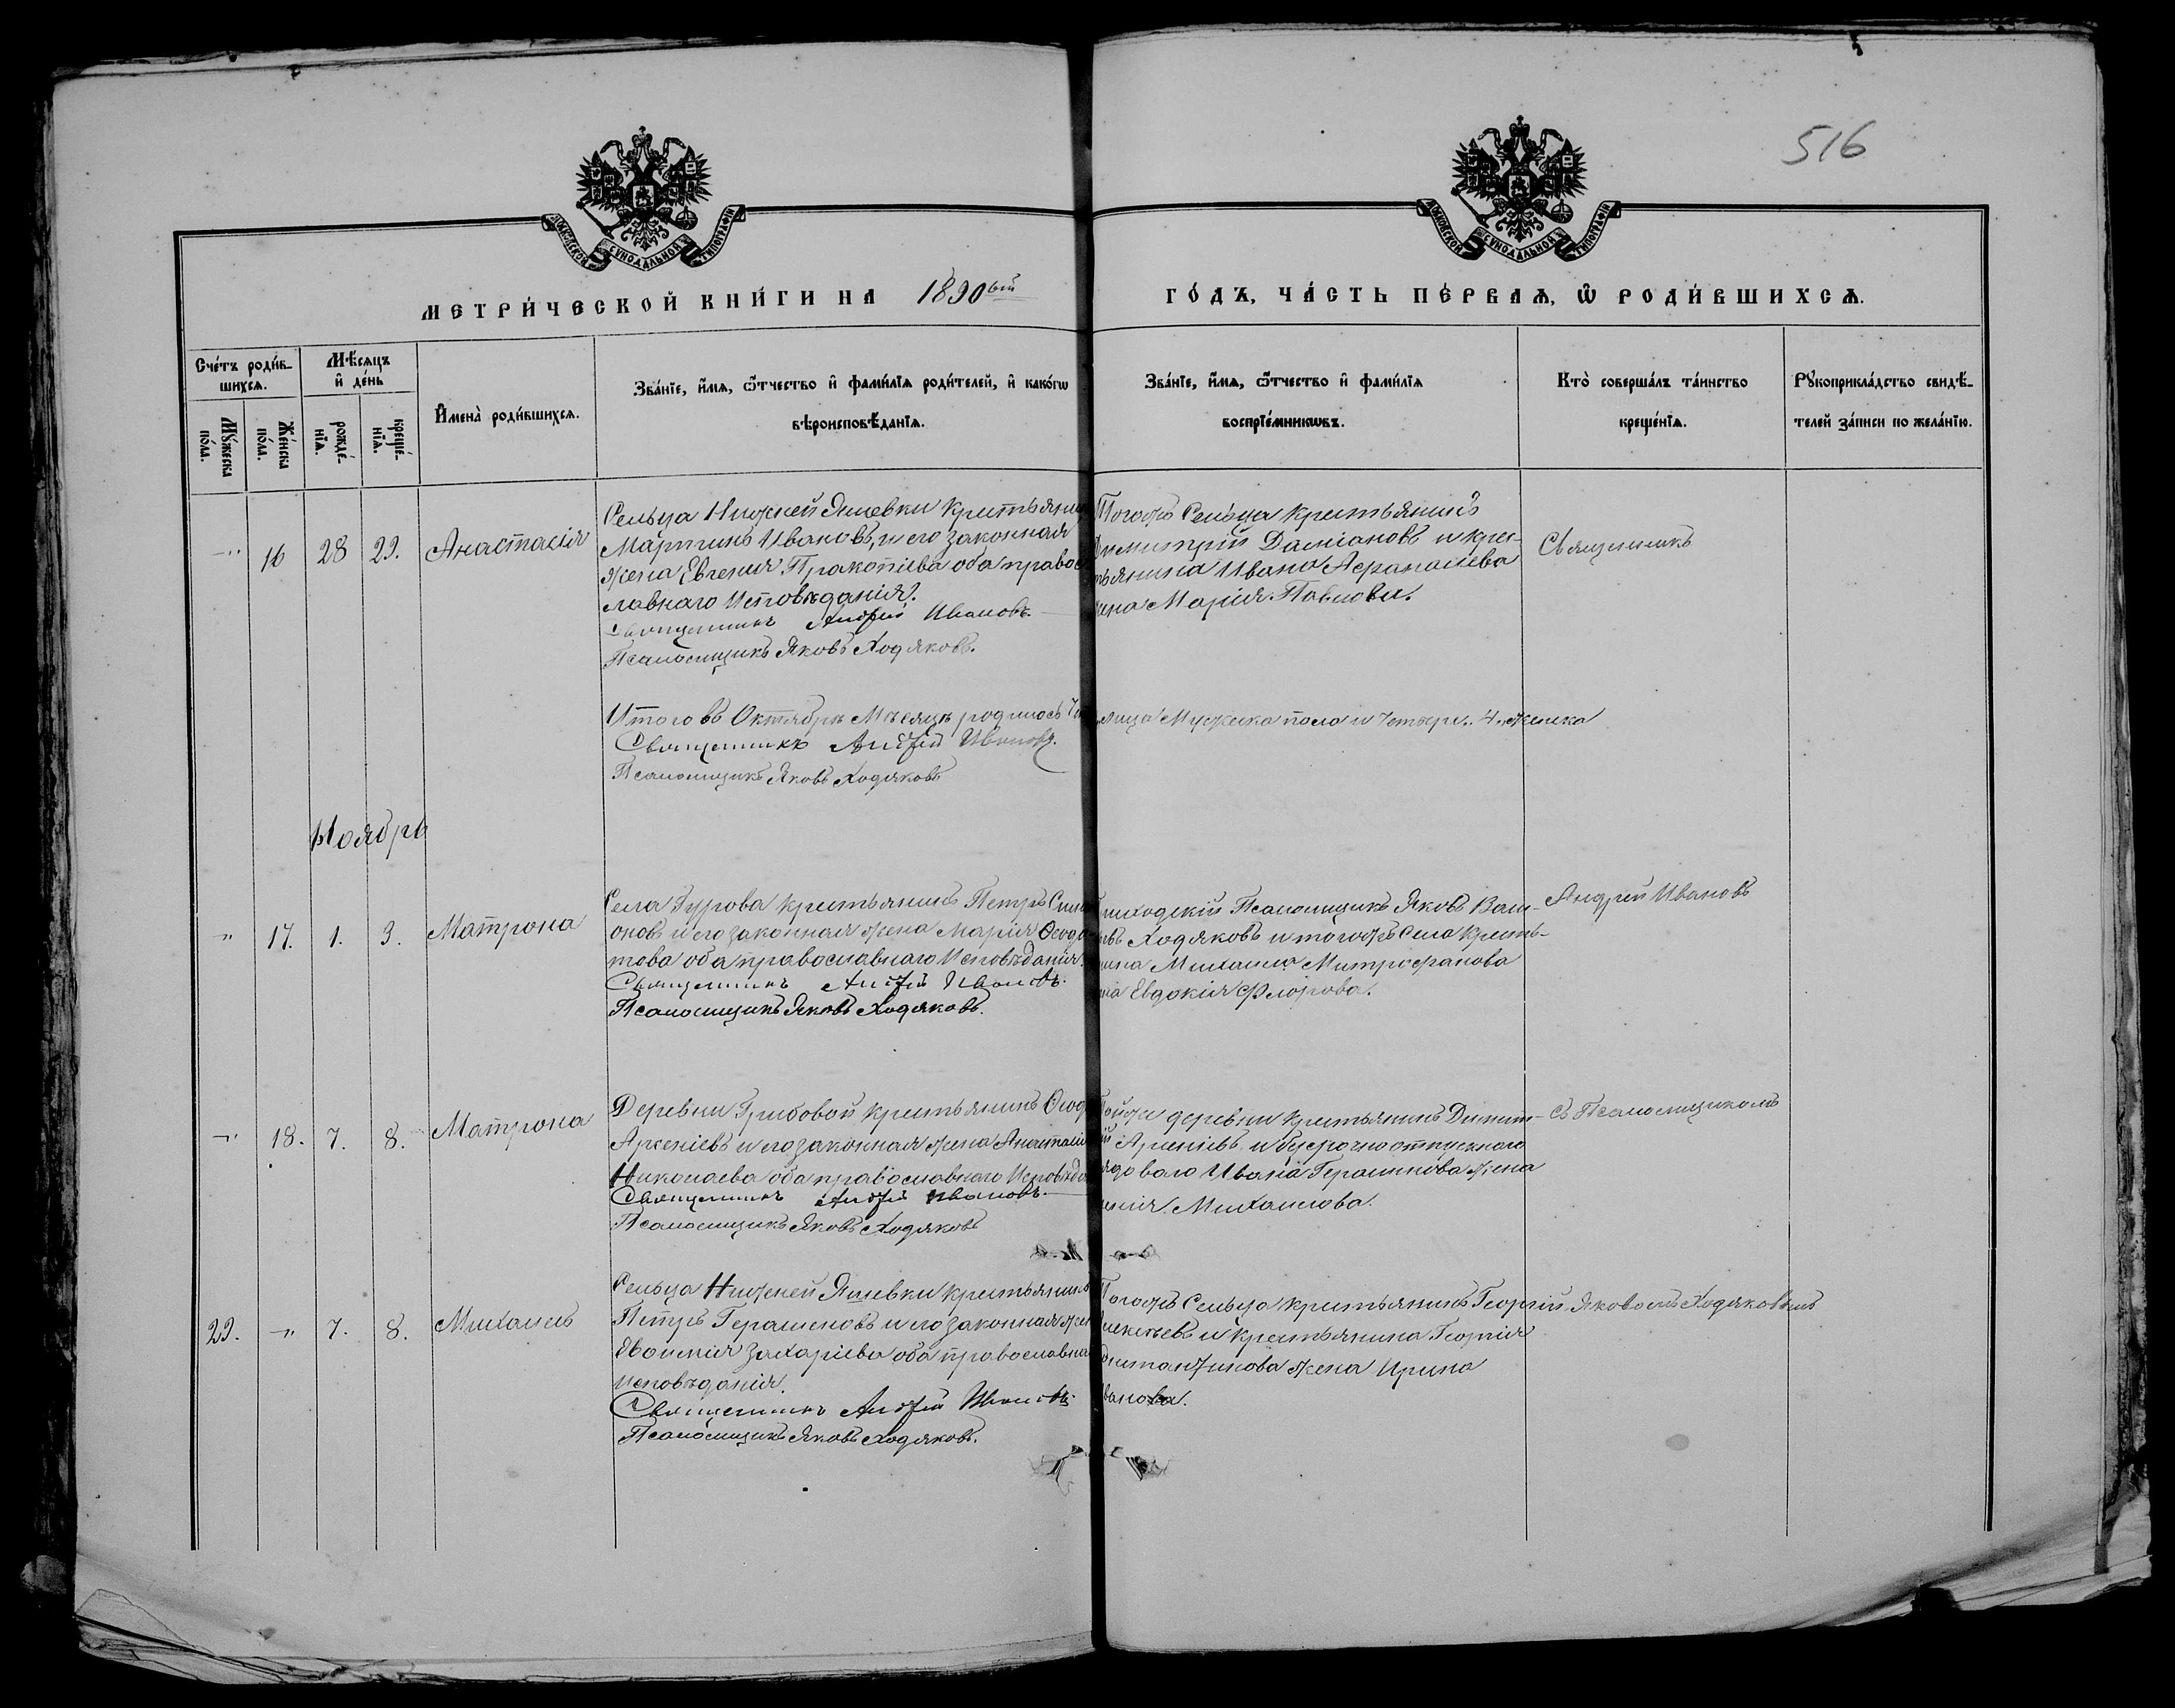 516
МОСКОВСКОЙ СѴНОДАЛЬНОЙ ТИПОГРАФІИ
МОСКОВСКОЙ СѴНОДАЛЬНОЙ ТИПОГРАФІИ
МЕТРИ́ЧЕСКОЙ КНИ́ГИ НА 1890 ый
ГО́ДЪ, ЧА́СТЬ ПЕ́РВАѦ, Ѡ҆ РОДИ́ВШИХСѦ.
Сче́тъ роди́в-
шихсѧ.
Мꙋ́жеска
по́ла.
Же́нска
по́ла.
Мѣ́сѧцъ
и҆ де́нь
рожде́-
нїѧ.
креще́-
нїѧ.
И҆мена̀ роди́вшихсѧ.
Зва́нїе, и҆́мѧ, ѻ҆́тчество и҆ фами́лїѧ роди́телей, и҆ како́гѡ
вѣроисповѣ́данїѧ.
Зва́нїе, и҆́мѧ, ѻ҆́тчество и҆ фами́лїѧ
воспрїе́мникѡвъ.
Кто̀ соверша́лъ та́инство
креще́нїѧ.
Рꙋкоприкла́дство свидѣ́-
телей за́писи по жела́нїю.
„ 16 28 29. Анастасія
Сельца Нижней Яшевки крестьянинъ
Мартинъ Ивановъ, и его законная
жена Евгенія Пракопіева оба право-
славнаго Исповѣданія.
Священникъ Андрей Ивановъ.
Псаломщикъ Яковъ Ходяковъ.
Тогожъ Сельца крестьянинъ
Димитрій Даміановъ и крес-
тьянина Ивана Афанасіева
жена Марія Павлова.
Священникъ
Итого въ Октябрѣ Мѣсяцѣ родилось
лица Мужска пола и четыре 4 женска
Священникъ Андрей Ивановъ.
Псаломщикъ Яковъ Ходяковъ
Ноябрь
„ 17. 1. 3. Матрона
Села Гурова крестьянинъ Петръ Сим-
оновъ и его законная жена Марія Ѳеодо-
това оба православнаго Исповѣданія.
Священникъ Андрей Ивановъ.
Псаломщикъ Яковъ Ходяковъ.
Приходскій Псаломщикъ Яковъ Васи-
евъ Ходяковъ и тогожъ Села кресть-
нина Михаила Митрофанова
Евдокія Флорова.
Андрей Ивановъ
„ 18. 7. 8. Матрона
Деревни Грибовой крестьянинъ Ѳеод
Арсеніевъ и его законная жена Анастасія
Николаева оба православнаго Исповѣда
Священникъ Андрей Ивановъ.
Псаломщикъ Яковъ Ходяковъ
Тойже деревни крестьянинъ Димит-
Арсеніевъ и безсрочно отпускнаго
рядоваго Ивана Герасимова жена
Михаилова.
съ Псаломщикомъ
22. „ 7. 8. Михаилъ
Сельца Нижней Яшевки крестьянинъ
Петръ Герасимовъ и его законная жена
Евфимія Захаріева оба православна
Исповѣданія.
Священникъ Андрей Ивановъ
Псаломщикъ Яковъ Ходяковъ.
Тогожъ Сельца крестьянинъ Георгій
Алексѣевъ и крестьянина Георгія
Константинова жена Ирина
Иванова.
Яковомъ Ходяковымъ